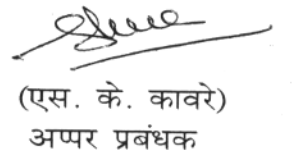 (एस. के. कावरे)
अप्पर प्रबंधक